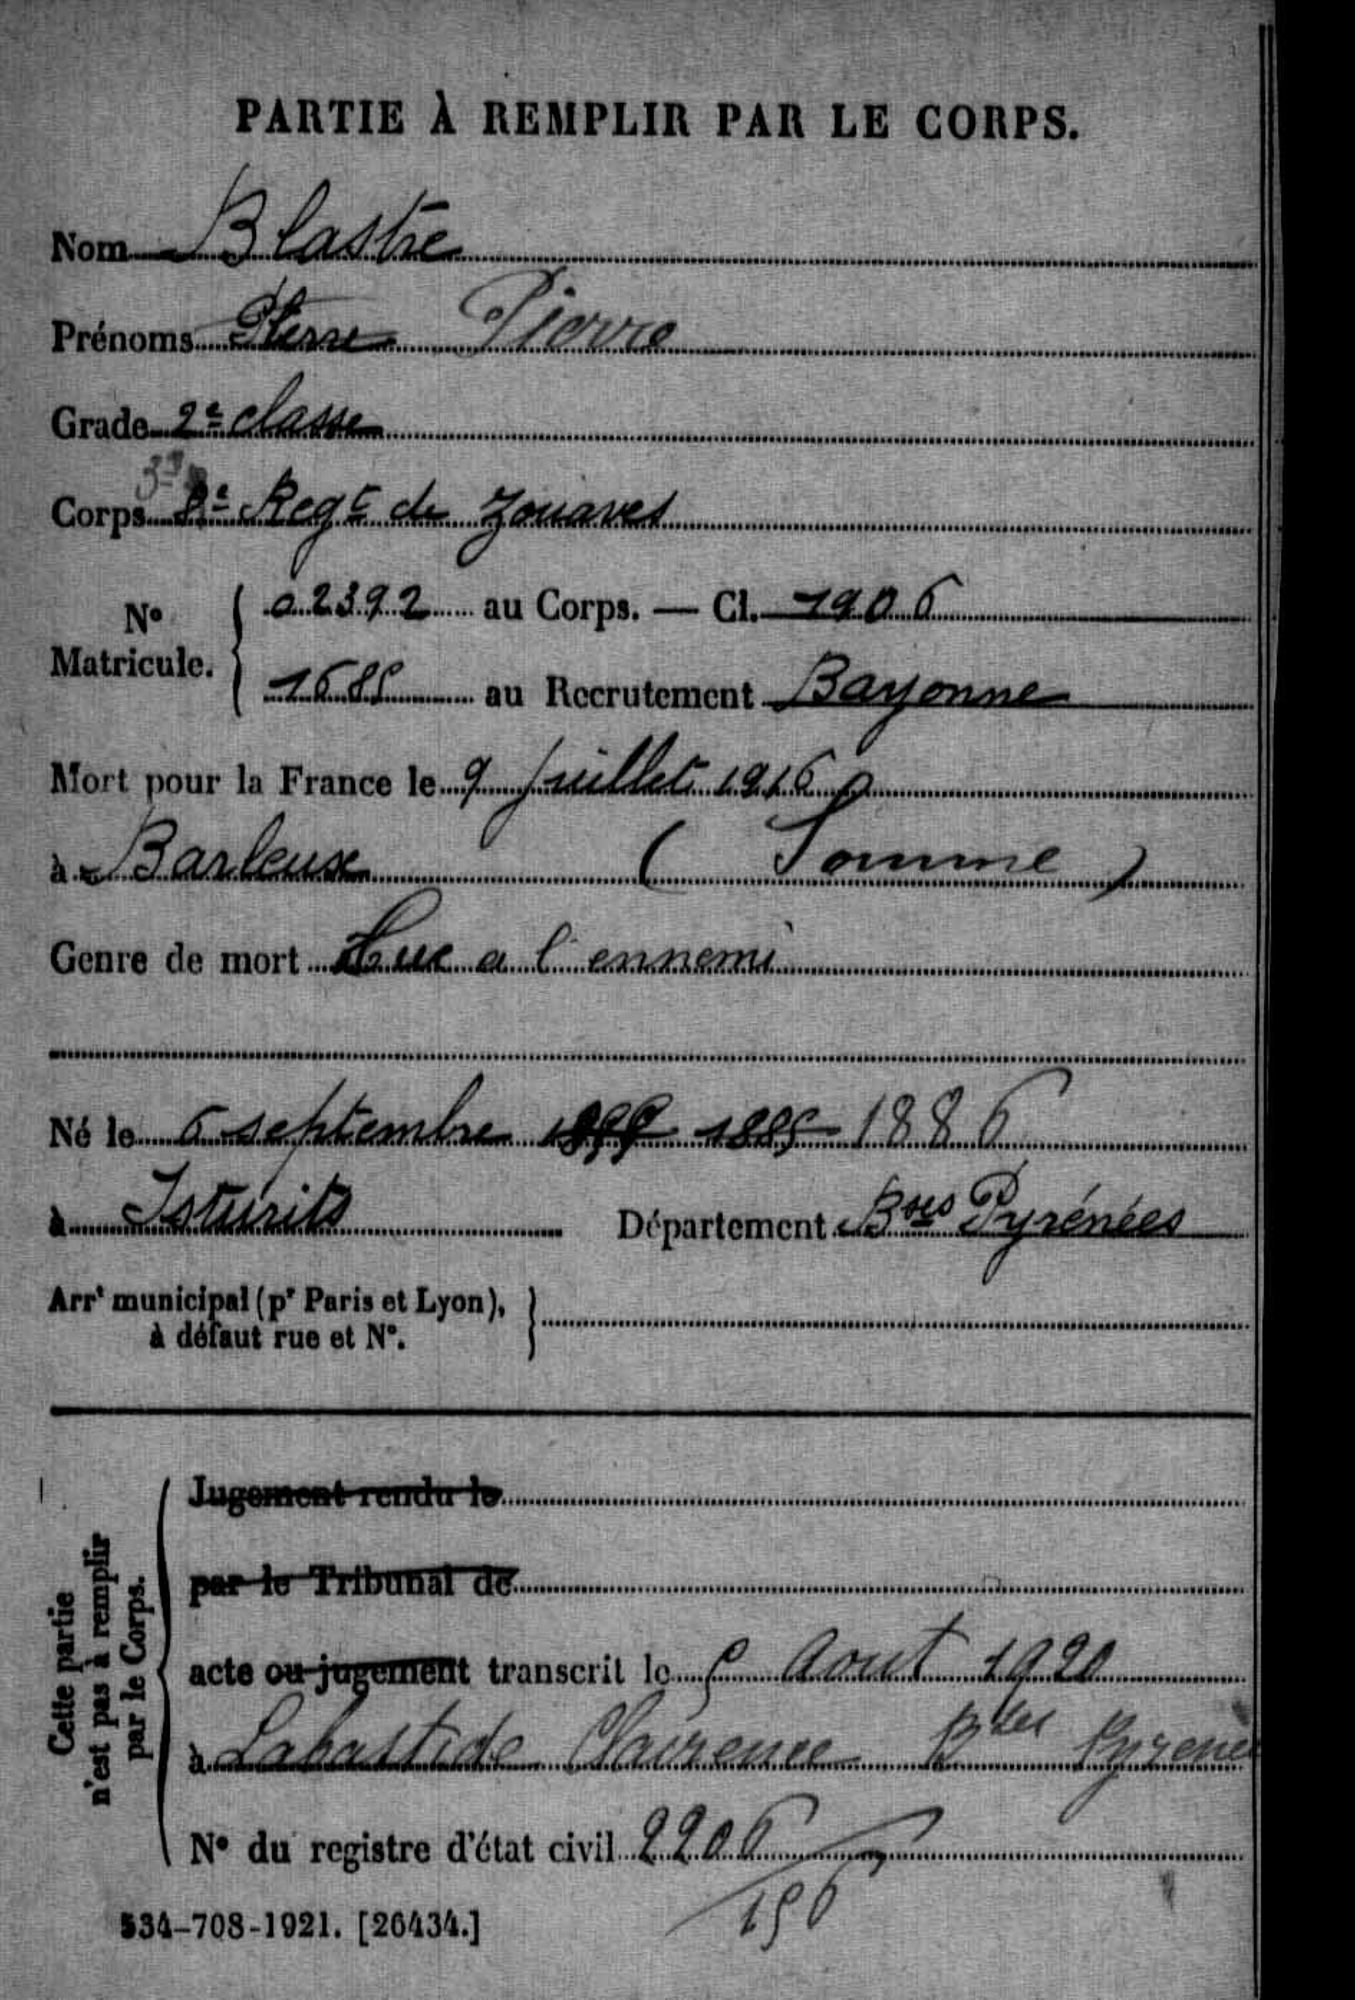 PARTIE À REMPLIR PAR LE CORPS.
Nom Blastre
Prénoms Pierre Pierre
Grade 2e classe
Corps 3e Regt de Zouaves
No Matricule. { 02392 au Corps. — Cl. 1906
1685 au Recrutement Bayonne
Mort pour la France le 9 Juillet 1916
à Barleux (Somme)
Genre de mort Tué a l'ennemi
Né le 6 septembre 1885 1886
à Isturits Département Bses Pyrénées
Arrt municipal (pr Paris et Lyon), à défaut rue et No. }
Cette partie n'est pas à remplir par le Corps.
Jugement rendu le
par le Tribunal de
acte ou jugement transcrit le 5 Aout 1920
à Labastide Clairence Bses Pyrenées
No du registre d'état civil 2206
156
534-708-1921. [26434.]